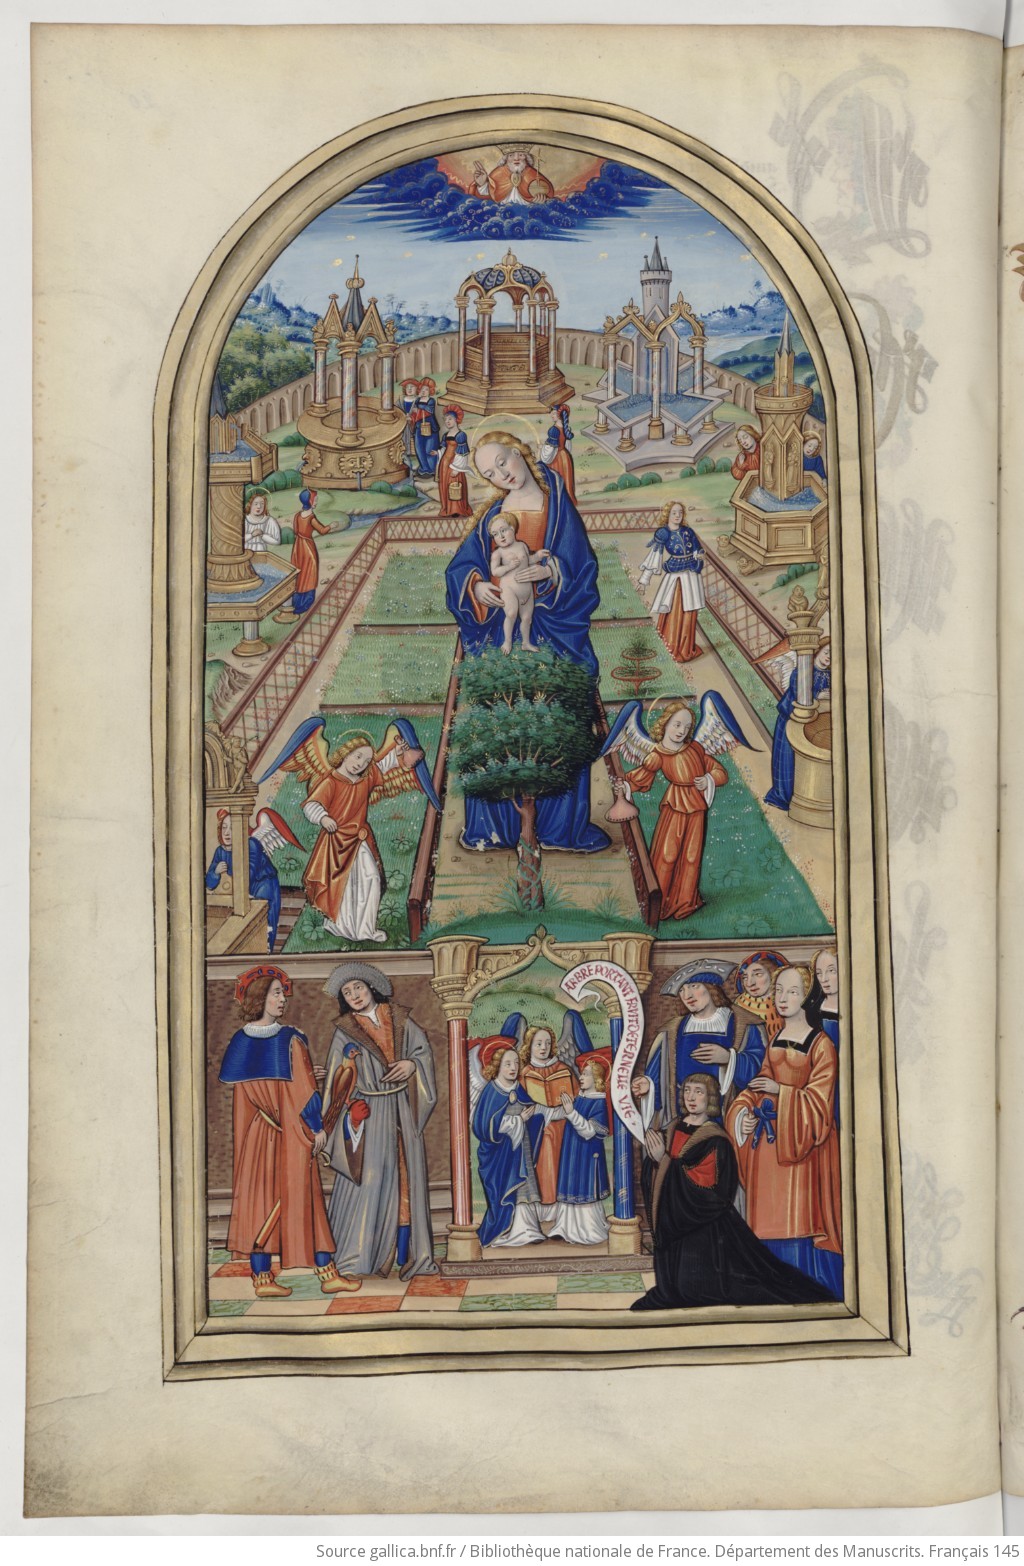 ARBRE PORTANT FRVIT DETERNELLE VIE
Source gallica.bnf.fr / Bibliothèque nationale de France. Département des Manuscrits. Français 145